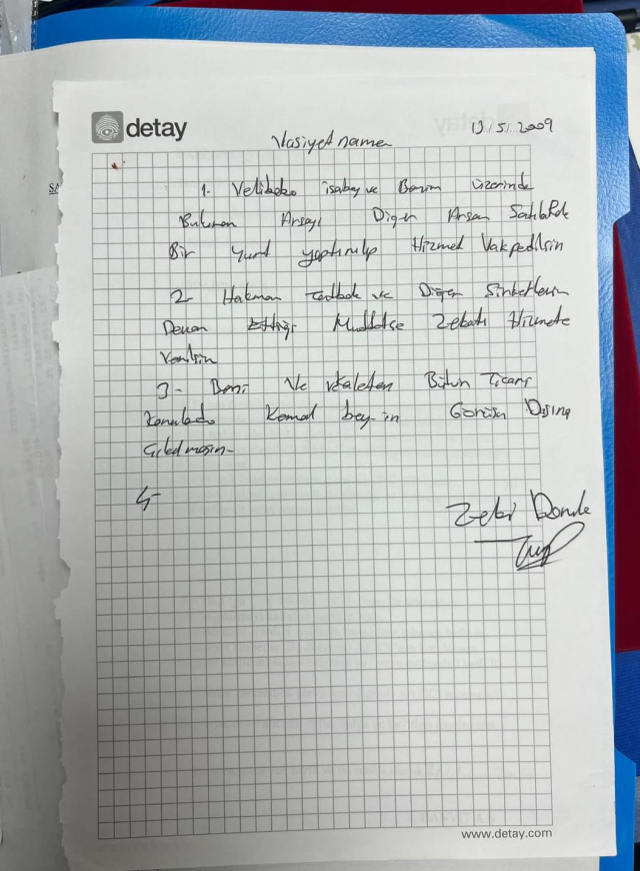 detay
13.5.2009
Vasiyetname
1. isabey ve Benim üzerinde
Bulunan Arsayı Diğer Arsam Satılıpta
Bir Yurt yaptırılıp Hizmet Vakfedilsin
2 Hakman ve Diğer Şirketlerin
Devam Ettiği Müddetçe Zekatı Hizmete
Verilsin
3- Beni Ve vekaleten Bütün Ticari
Konularda Kemal bey-in Görüşü Dışına
Çıkılmasın-
4-
Zeki
www.detay.com